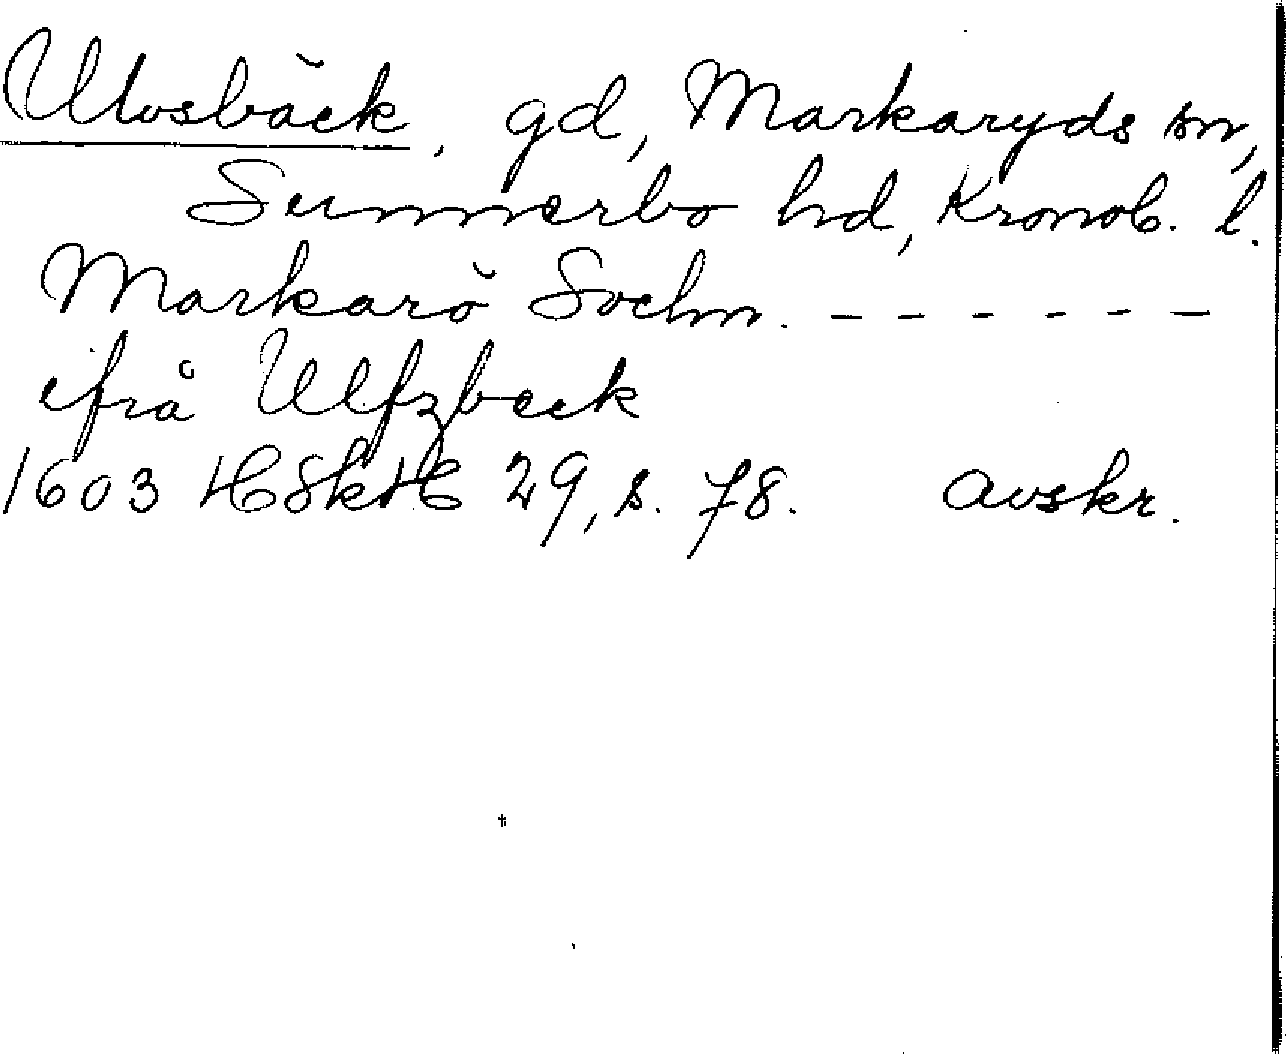 Ulvsbäck, gd, Markaryds sn,
Sunnerbo hd, Kronob. l.
Markarö Sochn. - - - - - -
ifrå Ulfzbeck
1603 HSkH 29, s. 78. Avskr.